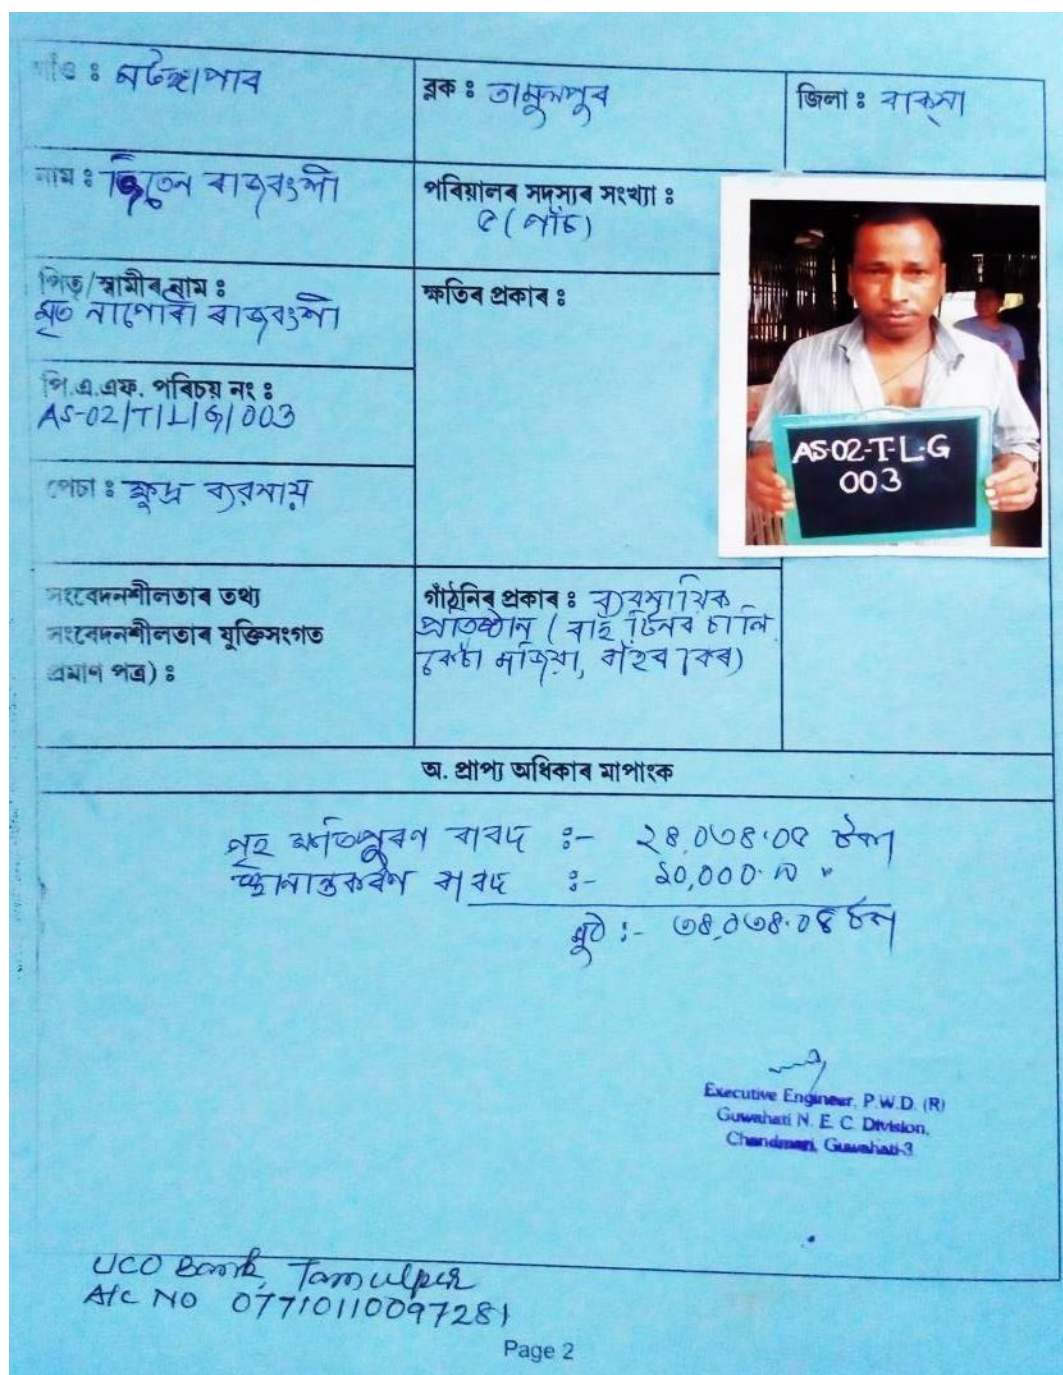 গাঁও ঃ মটঙ্গাপাৰ
ব্লক ঃ তামুলপুৰ
জিলা ঃ বাক্সা
নাম ঃ জিতেন ৰাজবংশী
পৰিয়ালৰ সদস্যৰ সংখ্যা ঃ
৫ (পাঁচ)
পিতৃ/স্বামীৰ নাম ঃ
মৃত নাপোৰা ৰাজবংশী
ক্ষতিৰ প্ৰকাৰ ঃ
পি.এ.এফ. পৰিচয় নং ঃ
AS-02/T/L/G/003
AS-02-T-L-G
003
পেচা ঃ ক্ষুদ্ৰ ব্যৱসায়
সংবেদনশীলতাৰ তথ্য
সংবেদনশীলতাৰ যুক্তিসংগত
প্ৰমাণ পত্ৰ) ঃ
গাঁঠনিৰ প্ৰকাৰ ঃ ব্যৱসায়িক
প্ৰতিষ্ঠান ( বাঁহ টিনৰ চালি
কেচা মজিয়া, বাঁহৰ বেৰ)
অ. প্ৰাপ্য অধিকাৰ মাপাংক
গৃহ ক্ষতিপুৰণ বাবদ ঃ- ২৪,০৩৪.০৫ টকা
স্থানান্তকৰণ বাবদ ঃ- ১০,০০০.00 "
মুঠ :- ৩৪,০৩৪.০৫ টকা
Executive Engineer, P.W.D. (R)
Guwahati N. E. C. Division,
Chandmari, Guwahati-3
UCO Bank, Tamulpur
A/c NO 07710110097281
Page 2